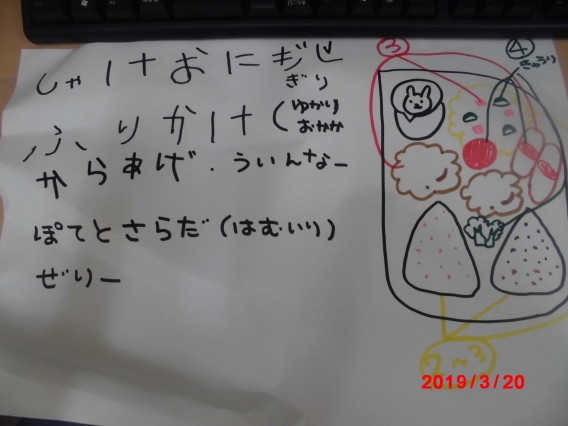 しゃけおに
ぎり
ふりかけ(ゆかり
おかか
からあげ・ういんなー
ぽてとさらだ(はむいり)
ぜりー
③
④
きゅうり
2～3
2019/3/20